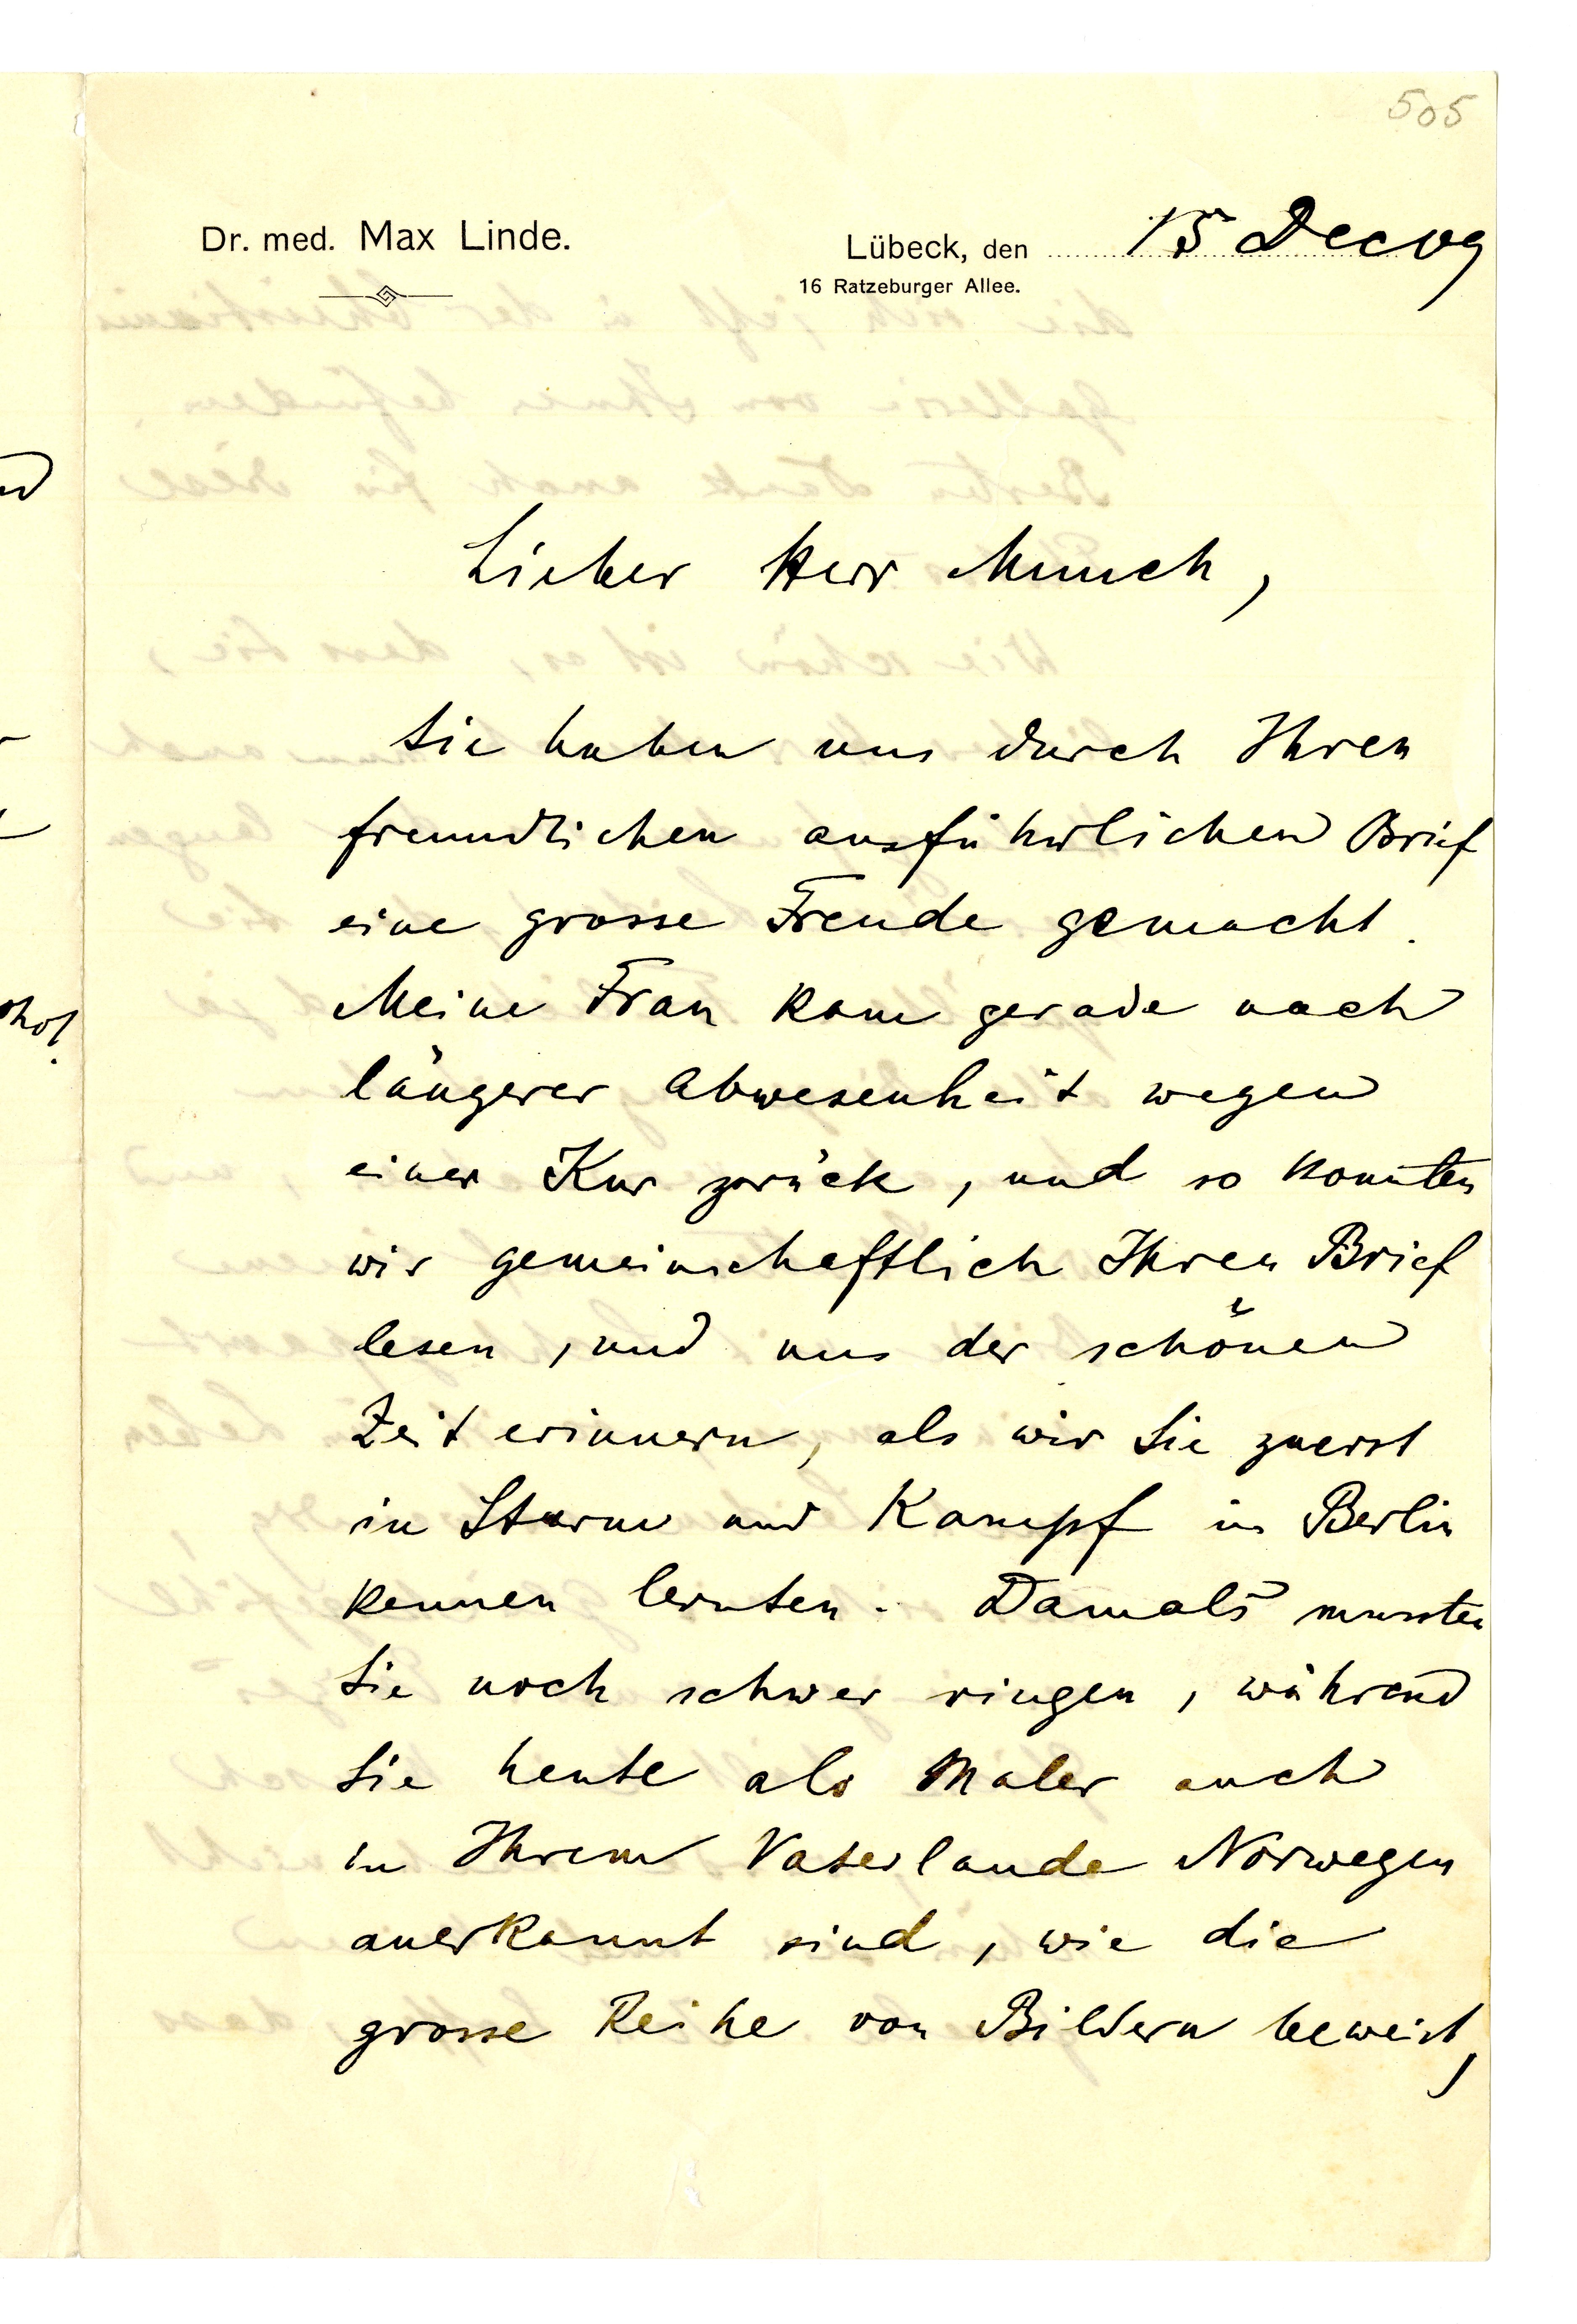 505
Dr. med. Max Linde.
Lübeck, den 15 Dec 09
16 Ratzeburger Allee.
Lieber Herr Munch,
Sie haben uns durch Ihren
freundlichen ausführlichen Brief
eine grosse Freude gemacht.
Meine Frau kam gerade nach
längerer Abwesenheit wegen
einer Kur zurück, und so konnten
wir gemeinschaftlich Ihren Brief
lesen, und uns der schönen
Zeit erinnern, als wir Sie zuerst
in Sturm und Kampf in Berlin
kennen lernten. Damals mussten
Sie noch schwer ringen, während
Sie heute als Maler auch
in Ihrem Vaterlande Norwegen
anerkannt sind, wie die
grosse Reihe von Bildern beweist,